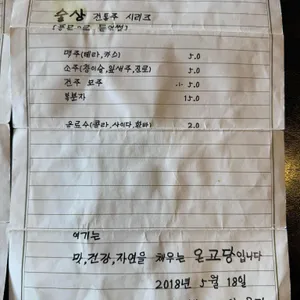 술상 전통주 시리즈
맥주(테라, 카스) 5.0
소주(참이슬, 잎새주, 진로) 5.0
전주 모주 5.0
복분자 15.0
음료수(콜라, 사이다, 환타) 2.0
여기는
맛, 건강, 자연을 채우는 온고당입니다
2018년 5월 18일